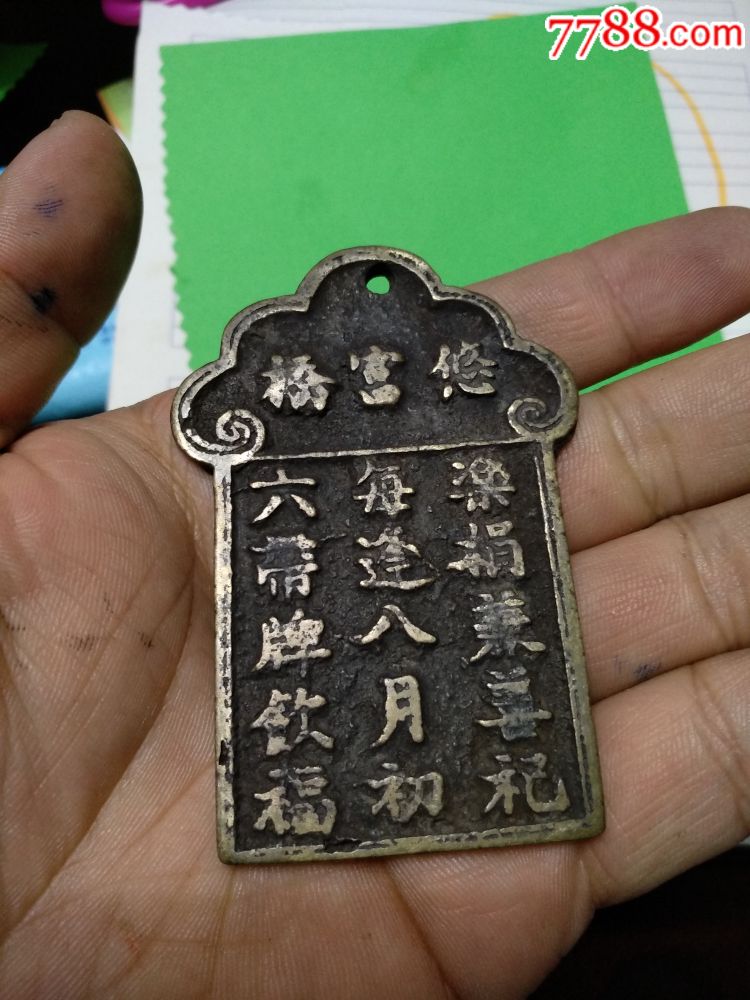 7788.com
悠宮橋
樂捐兼善祀
每逢八月初
六帶牌飲福